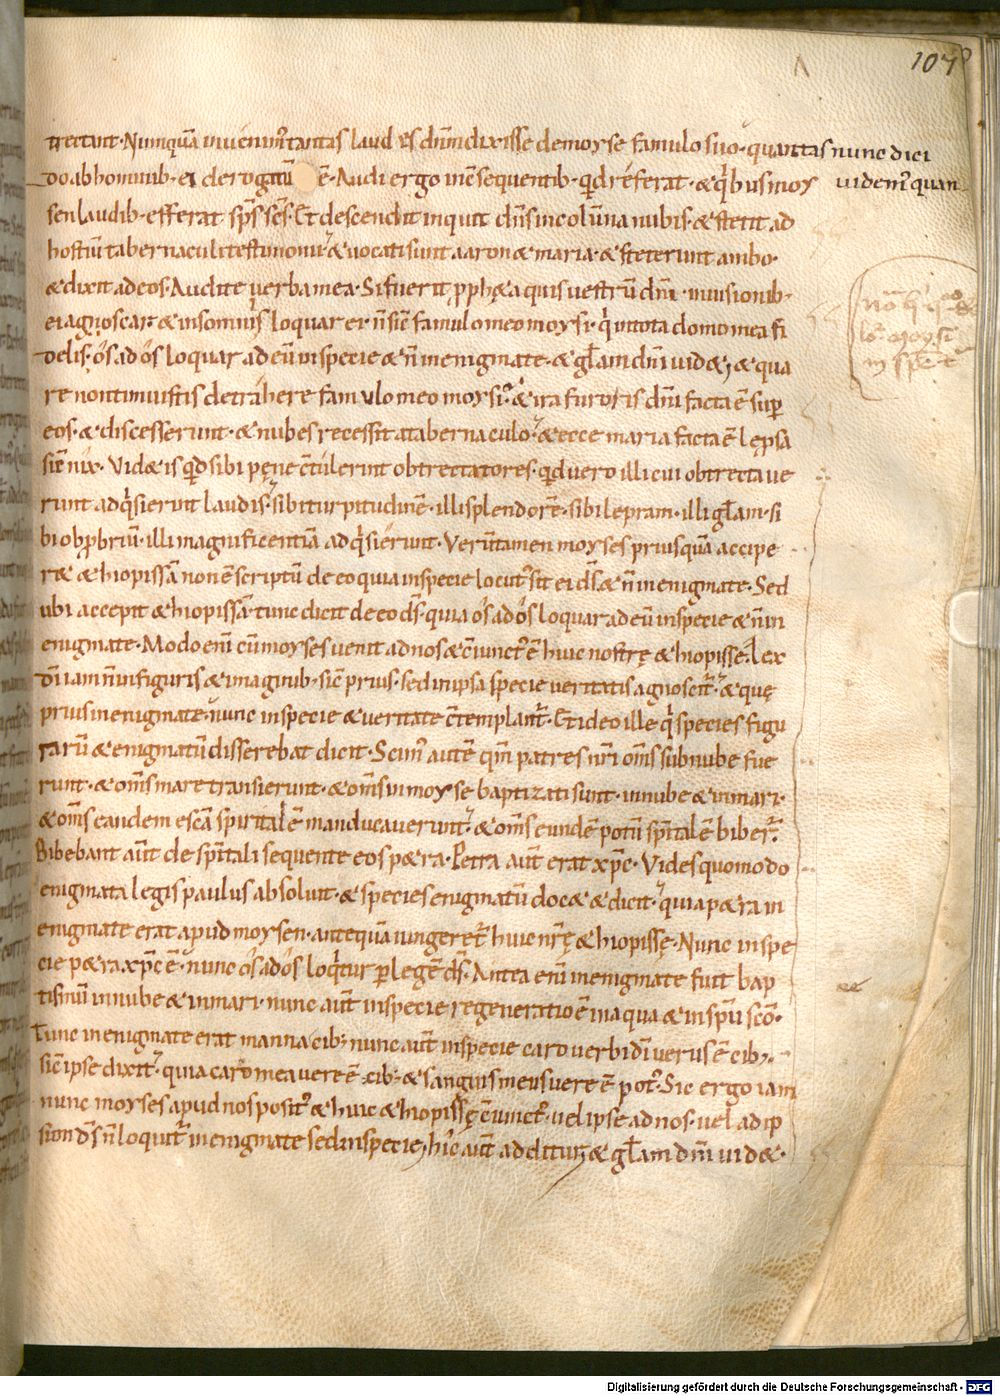 107
trectant. Nunquā invenim᷒ tantas laudes dn̄m dixisse de moyse famulo suo. quantas nunc dici
videm᷒ quan
do ab hominib. ei derogatū ē. Audi ergo in c̄sequentib. qd referat. & qͥbus moy
sen laudib. efferat sps̄ scs̄. Et descendit inquit dn̄s in colūna nubis. & stetit ad
hostiū tabernaculi testimonii. & vocati sunt aaron & maria. & steterunt ambo.
& dixit ad eos. Audite verba mea. Si fuerit ꝓph&a quis vestrū dn̄i. in visionib.
ei agnoscar. & in somniis loquar ei. n̄ sic̄ famulo meo moysi. qͥ in tota domo mea fi
delis. os ad os loquar ad eū in specie & n̄ in enigmate. & glam dn̄i vid&. & qua
re non timuistis detrahere famulo meo moysi? & ira furoris dn̄i facta ē suꝑ
eos. & discesserunt. & nubes recessit a tabernaculo. & ecce maria facta ē lępsa
sic̄ nix. Vid&is qd sibi pęne c̄tulerint obtrectatores. qd vero illi cui obtrectave
runt adqͥsierint laudis. sibi turpitudinē. illi splendorē. sibi lepram. illi glam. si
bi obꝓbriū. illi magnificentiā adqͥsierunt. Veruntamen moyses priusquā accipe
r& &hiopissā non ē scriptū de eo quia in specie locut᷒ sit ei ds̄. & n̄ in enigmate. Sed
ubi accepit &hiopissā tunc dicit de eo ds̄. quia os ad os loquar ad eū in specie & n̄ in
enigmate. Modo eni cū moyses venit ad nos & c̄iunct᷒ ē huic nostrę &hiopissę. lex
dī iam n̄ in figuris & imaginib. sic̄ prius. sed in ipsa specie veritatis agnoscit᷒. & quę
prius in enigmate. nunc in specie & veritate c̄templant᷒. Et ideo ille qͥ species figu
rarū & enigmatū disserebat dicit. Scim᷒ autē qm̄ patres nr̄i oms̄ sub nube fue
runt. & oms̄ mare transierunt. & oms̄ in moyse baptizati sunt. in nube & in mari.
& oms̄ eandem escā spiritalē manducaverunt. & oms̄ eundē potū spi͞talē biber̄.
Bibebant aut̄ de spi͞tali sequente eos p&ra. Petra aut̄ erat xp̄c. Vides quomodo
enigmata legis paulus absolvit. & species enigmatū doc& & dicit. quia p&ra in
enigmate erat apud moysen. antequā iungeret᷒ huic nr̄ę &hiopissę. Nunc in spe
cie p&ra xp̄c ē. nunc os ad os loqͥtur ꝑ legē ds̄. Antea enī in enigmate fuit bap
tismū in nube & in mari. nunc aut̄ in specie regeneratio ē in aqua & in spū scō.
Tunc in enigmate erat manna cib᷒. nunc aut̄ in specie caro verbi dī verus ē cib᷒.
sic̄ ipse dixit. quia caro mea vere ē cib᷒. & sanguis meus vere ē pot᷒. Sic ergo iam
nunc moyses apud nos posit᷒ & huic &hiopissę c̄iunct᷒. vel ipse ad nos. vel ad ip
sion ds̄ n̄ loquit᷒ in enigmate sed in specie. hic aut̄ additur & glam dn̄i vid&.
Digitalisierung gefördert durch die Deutsche Forschungsgemeinschaft - DFG